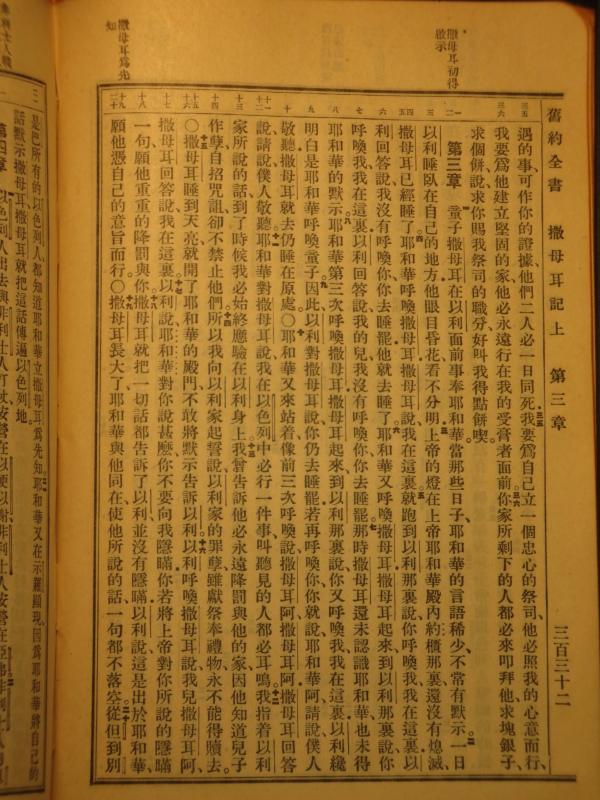 舊約全書 撒母耳記上 第三章 三百三十二
撒母耳初得
啟示
遇的事可作你的證據、他們二人必一日同死。我要爲自己立一個忠心的祭司、他必照我的心意而行、
我要爲他建立堅固的家、他必永遠行在我的受膏者面前。你家所剩下的人都必來叩拜他、求塊銀子、
求個餅、說、求你賜我祭司的職分、好叫我得點餅喫。
第三章 童子撒母耳在以利面前事奉耶和華、當那些日子、耶和華的言語稀少、不常有默示。一日
以利睡臥在自己的地方、他眼目昏花、看不分明。上帝的燈在上帝耶和華殿內約櫃那裏、還沒有熄滅、
撒母耳已經睡了。耶和華呼喚撒母耳、撒母耳說、我在這裏。就跑到以利那裏、說、你呼喚我、我在這裏、以
利回答說、我沒有呼喚你、你去睡罷、他就去睡了。耶和華又呼喚撒母耳、撒母耳起來、到以利那裏、說、你
呼喚我、我在這裏、以利回答說、我的兒、我沒有呼喚你、你去睡罷。那時撒母耳還未認識耶和華、也未得
耶和華的默示。耶和華第三次呼喚撒母耳、撒母耳起來、到以利那裏、說、你又呼喚我、我在這裏、以利纔
明白是耶和華呼喚童子。因此以利對撒母耳說、你仍去睡罷、若再呼喚你、你就說、耶和華阿、請說、僕人
敬聽、撒母耳就去、仍睡在原處。○耶和華又來站着、像前三次呼喚說、撒母耳阿、撒母耳阿、撒母耳回答
說、請說、僕人敬聽。耶和華對撒母耳說、我在以色列中必行一件事、叫聽見的人都必耳鳴。我指着以利
家所說的話、到了時候、我必始終應驗在以利身上。我曾告訴他必永遠降罰與他的家、因他知道兒子
作孽、自招咒詛、卻不禁止他們。所以我向以利家起誓說、以利家的罪孽、雖獻祭奉禮物、永不能得贖去。
○撒母耳睡到天亮、就開了耶和華的殿門、不敢將默示告訴以利。以利呼喚撒母耳說、我兒撒母耳阿、
撒母耳回答說、我在這裏。以利說、耶和華對你說甚麼、你不要向我隱瞞、你若將上帝對你所說的隱瞞
一句、願他重重的降罰與你。撒母耳就把一切話都告訴了以利、並沒有隱瞞、以利說、這是出於耶和華、
願他憑自己的意旨而行。○撒母耳長大了、耶和華與他同在、使他所說的話、一句都不落空。從但到別
撒母耳爲先
知
是巴所有的以色列人、都知道耶和華立撒母耳爲先知。耶和華又在示羅顯現、因爲耶和華將自己的
話默示撒母耳、撒母耳就把這話傳遍以色列地。
第四章 以色列人出去與非利士人打仗、安營在以便以謝、非利士人安營在亞弗